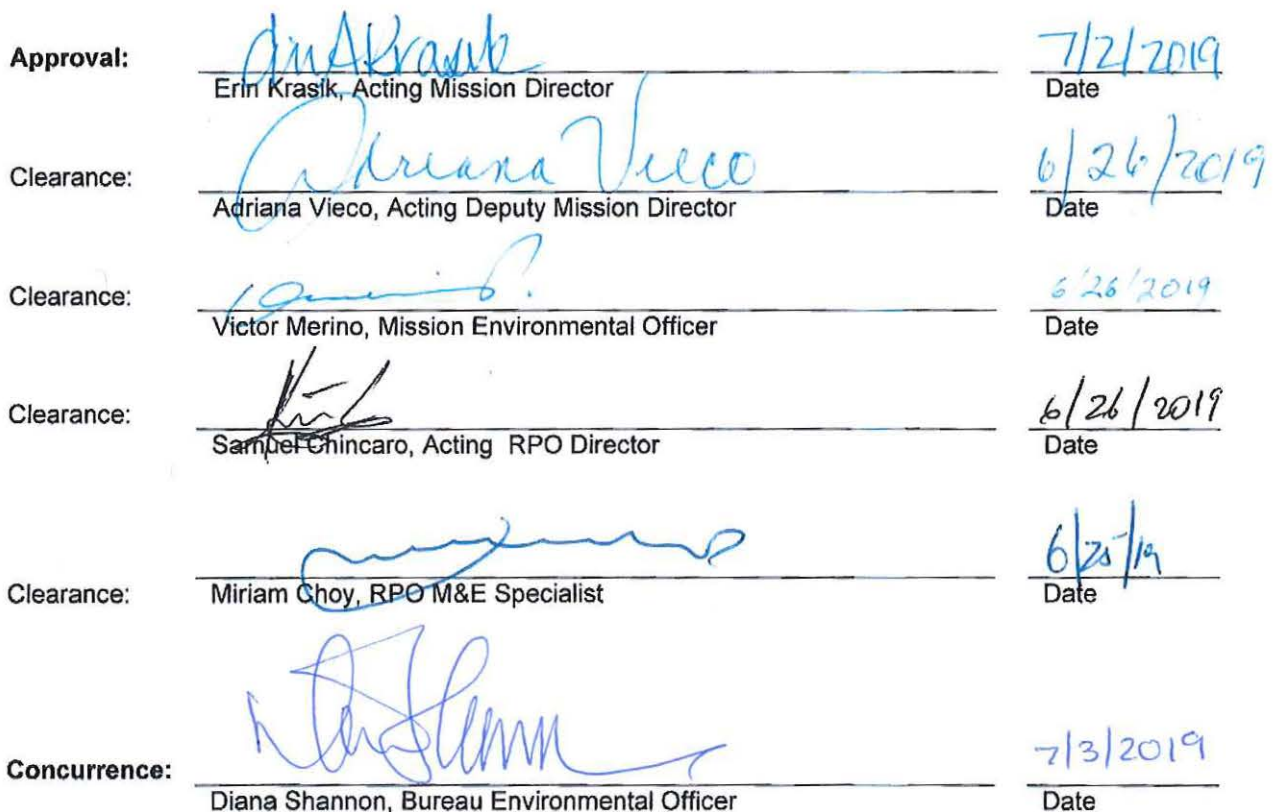 Approval: Erin A Krasik 7/2/2019
Erin Krasik, Acting Mission Director Date
Clearance: Adriana Vieco 6/26/2019
Adriana Vieco, Acting Deputy Mission Director Date
Clearance: 6/26/2019
Victor Merino, Mission Environmental Officer Date
Clearance: 6/26/2019
Samuel Chincaro, Acting RPO Director Date
Clearance: 6/25/19
Miriam Choy, RPO M&E Specialist Date
Concurrence: 7/3/2019
Diana Shannon, Bureau Environmental Officer Date